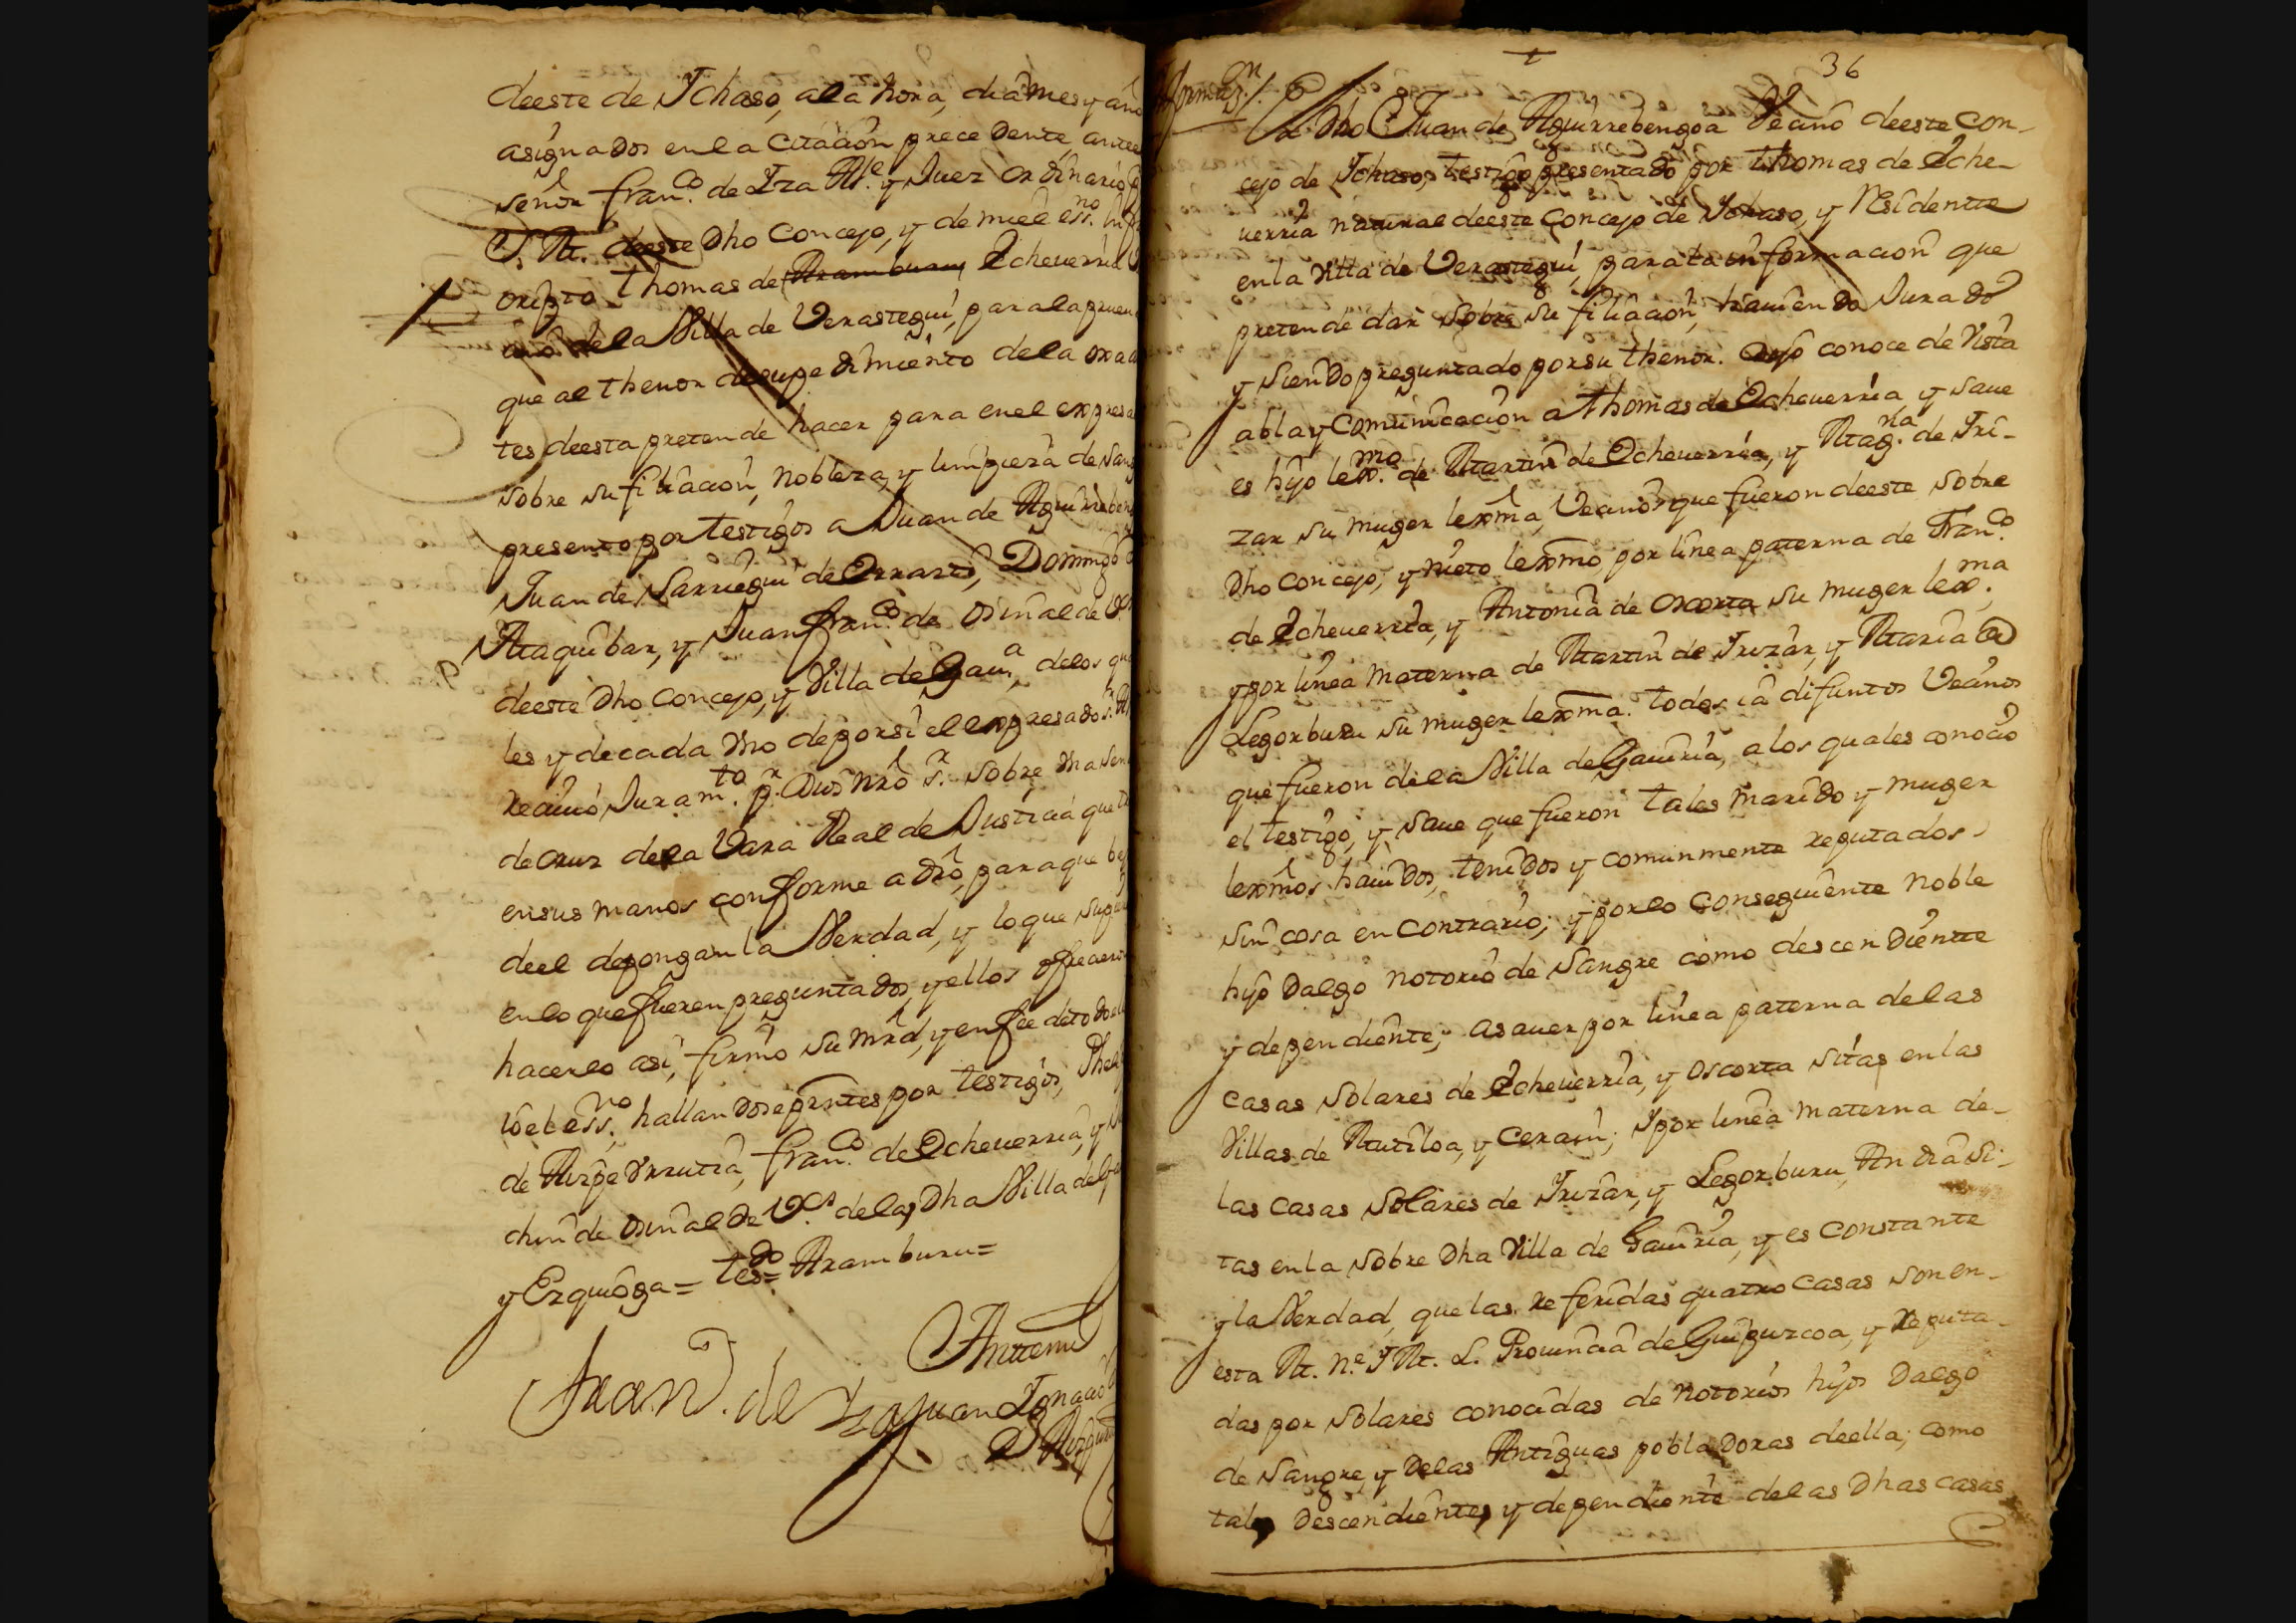 deeste de Ichaso, ala hora, dia mes y año
asignados enla Citacion precedente, ante el
señor fran.co de Iza Al.e y Juez ordinario
S. M. deeste Dho Concejo, y de mi el ess.no
Thomas de Aramburu Echeuerria
dela Villa de Verastegui, para la prueua
que al thenor desupedimiento dela
tes deesta pretende hacer para enel expresa
sobre su filiacion, Nobleza, y limpieza de Sang
presento por testigos a Juan de Aguirrebeng
Juan de Sarriegui de Orraste, Domingo
Ataquibar, y Juan fran.co de Osinalde V.s
deeste Dho Concejo, y Villa de Gau.a delos qua
les y decada Uno deporsi el expresado s.r
reciuió Juram.to p.r Dios Nrô s.r sobre Una señ
de cruz dela Vara Real de Justicia que
ensus manos conforme a drô, paraque
deel depongan la Verdad, y loque supie
enlo que fueren preguntados, y ellos ofrecieron
hacerlo así, firmó su mrd, y enfee detodo
Io el ess.no, hallandose prntes por testigos,
de Aizpe Urrutia, fran.co de Echeuerria, y
chin de Osinalde V.s dela Dha Villa de
y Ezquioga = tes.do = Aramburu =
Antemi
Fran.co de Iza Juan Ignacio
36
Informaz.on
El Dho Juan de Aguirrebengoa Vecino deeste Con-
cejo de Ichaso, testigo presentado por thomas de Eche-
uerria natural deeste Concejo de Ichaso, y Residente
enla Villa de Verastegui, para la informacion que
pretende dar sobre su filiacion, hauiendo Jurado
y siendo preguntado por su thenor. Dijo conoce de Vista
abla y Comunicacion a Thomas de Echeuerria y saue
es hijo lexmo. de Martin de Echeuerria, y Mag.na de Iri-
zar su muger lexma, Vecinos que fueron deeste sobre
Dho Concejo, y nieto lexmo, por linea paterna de Fran.co
de Echeuerria, y Antonia de Oscorta su muger lex.ma
y por linea materna de Martin de Irizar, y Maria de
Legorburu su muger lexma. todos ia difuntos Vecinos
que fueron dela Villa de Gauiria, alos quales conocio
el testigo, y saue que fueron tales marido y muger
lexmos, hauidos, tenidos y comunmente reputados
sin cosa en contrario; y porlo conseguiente noble
hijo Dalgo notorio de Sangre como descendiente
y dependiente; asauer por linea paterna delas
casas Solares de Echeuerria, y Oscorta sitas enlas
Villas de Mutiloa, y Cerain; Ipor linea materna de-
las casas Solares de Irizar, y Legorburu, An dia si-
tas enla sobre Dha Villa de Gauiria, y es constante
y la Verdad, que las referidas quatro casas son en-
esta M. N.e Y M. L. Prouincia de Guipuzcoa, y Reputa-
das por Solares conocidas de notorios hijos Dalgo
de Sangre, y Delas Antiguas pobladoras deella; como
tales Descendientes, y dependiente delas Dhas casas